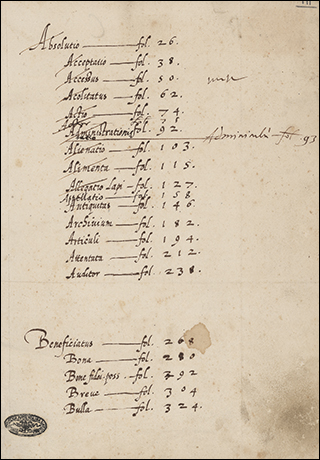 Absolutio fol. 26.
Acceptatio fol. 38.
Accessus fol. 50.
Acolitatus fol. 62.
Actio fol. 74.
Administrationis fol. 92.
Adminiculi fol 93
Alienatio fol. 103.
Alimenta fol. 115.
fol. 127.
Appellatio fol. 158
Antiquitas fol. 146
Archivium fol. 182.
Articuli fol. 194.
Attentata fol. 212
Auditor fol. 238.
Beneficiatus fol. 268
Bona fol. 280
Bone fidei poss. fol. 292
Breve fol. 304
Bulla fol. 324.